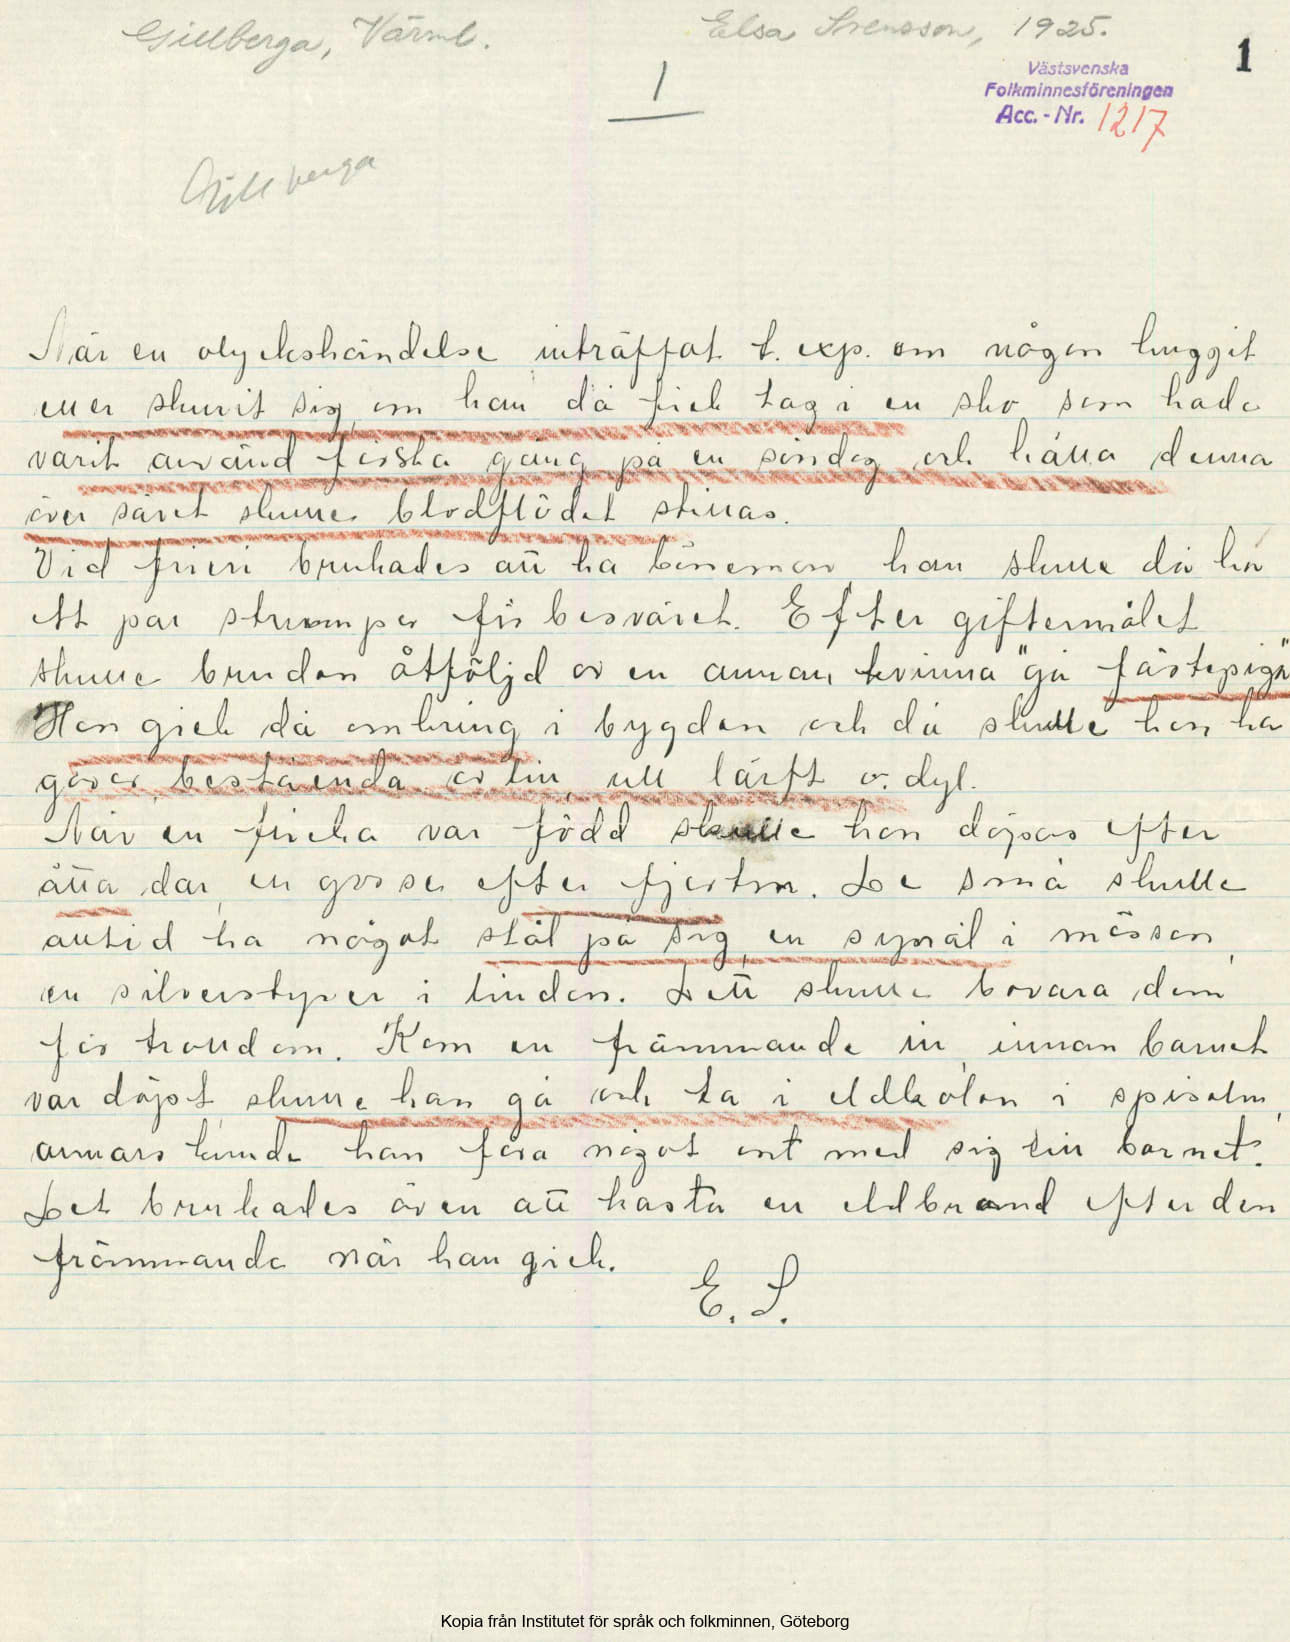 Gillberga, Värml.
Elsa Svensson, 1925.
1
Västsvenska
Folkminnesföreningen
Acc.-Nr. 1217
1
Gillberga
När en olyckshändelse inträffat t. exp. om någon huggit
eller skurit sig, om han då fick tag i en sko som hade
varit använd första gång på en söndag och hålla denna
över såret skulle blodflödet stillas.
Vid frieri brukades att ha böneman, han skulle då ha
ett par strumper för besväret. Efter giftermålet
skulle bruden åtföljd av en annan kvinna "gå fästepiga"
Hon gick då omkring i bygden och då skulle hon ha
gåvor, bestående av lin, ull lärft o. dyl.
När en flicka var född skulle hon döpas efter
åtta dar, en gosse efter fjorton. De små skulle
alltid ha något stål på sig, en synål i mössan,
en silverstyver i lindan. Dett skulle bevara dem
för trolldom. Kom en främmande in, innan barnet
var döpt, skulle han gå och ta i eldkolen i spiseln,
annars kunde han föra något ont med sig till barnet.
Det brukades även att kasta en eldbrand efter den
främmande när han gick.
E. S.
Kopia från Institutet för språk och folkminnen, Göteborg